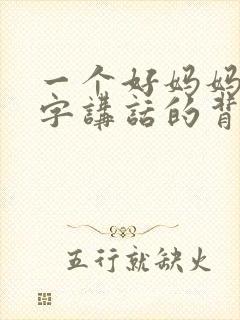 一个好妈妈
字講話的背
五行就缺火